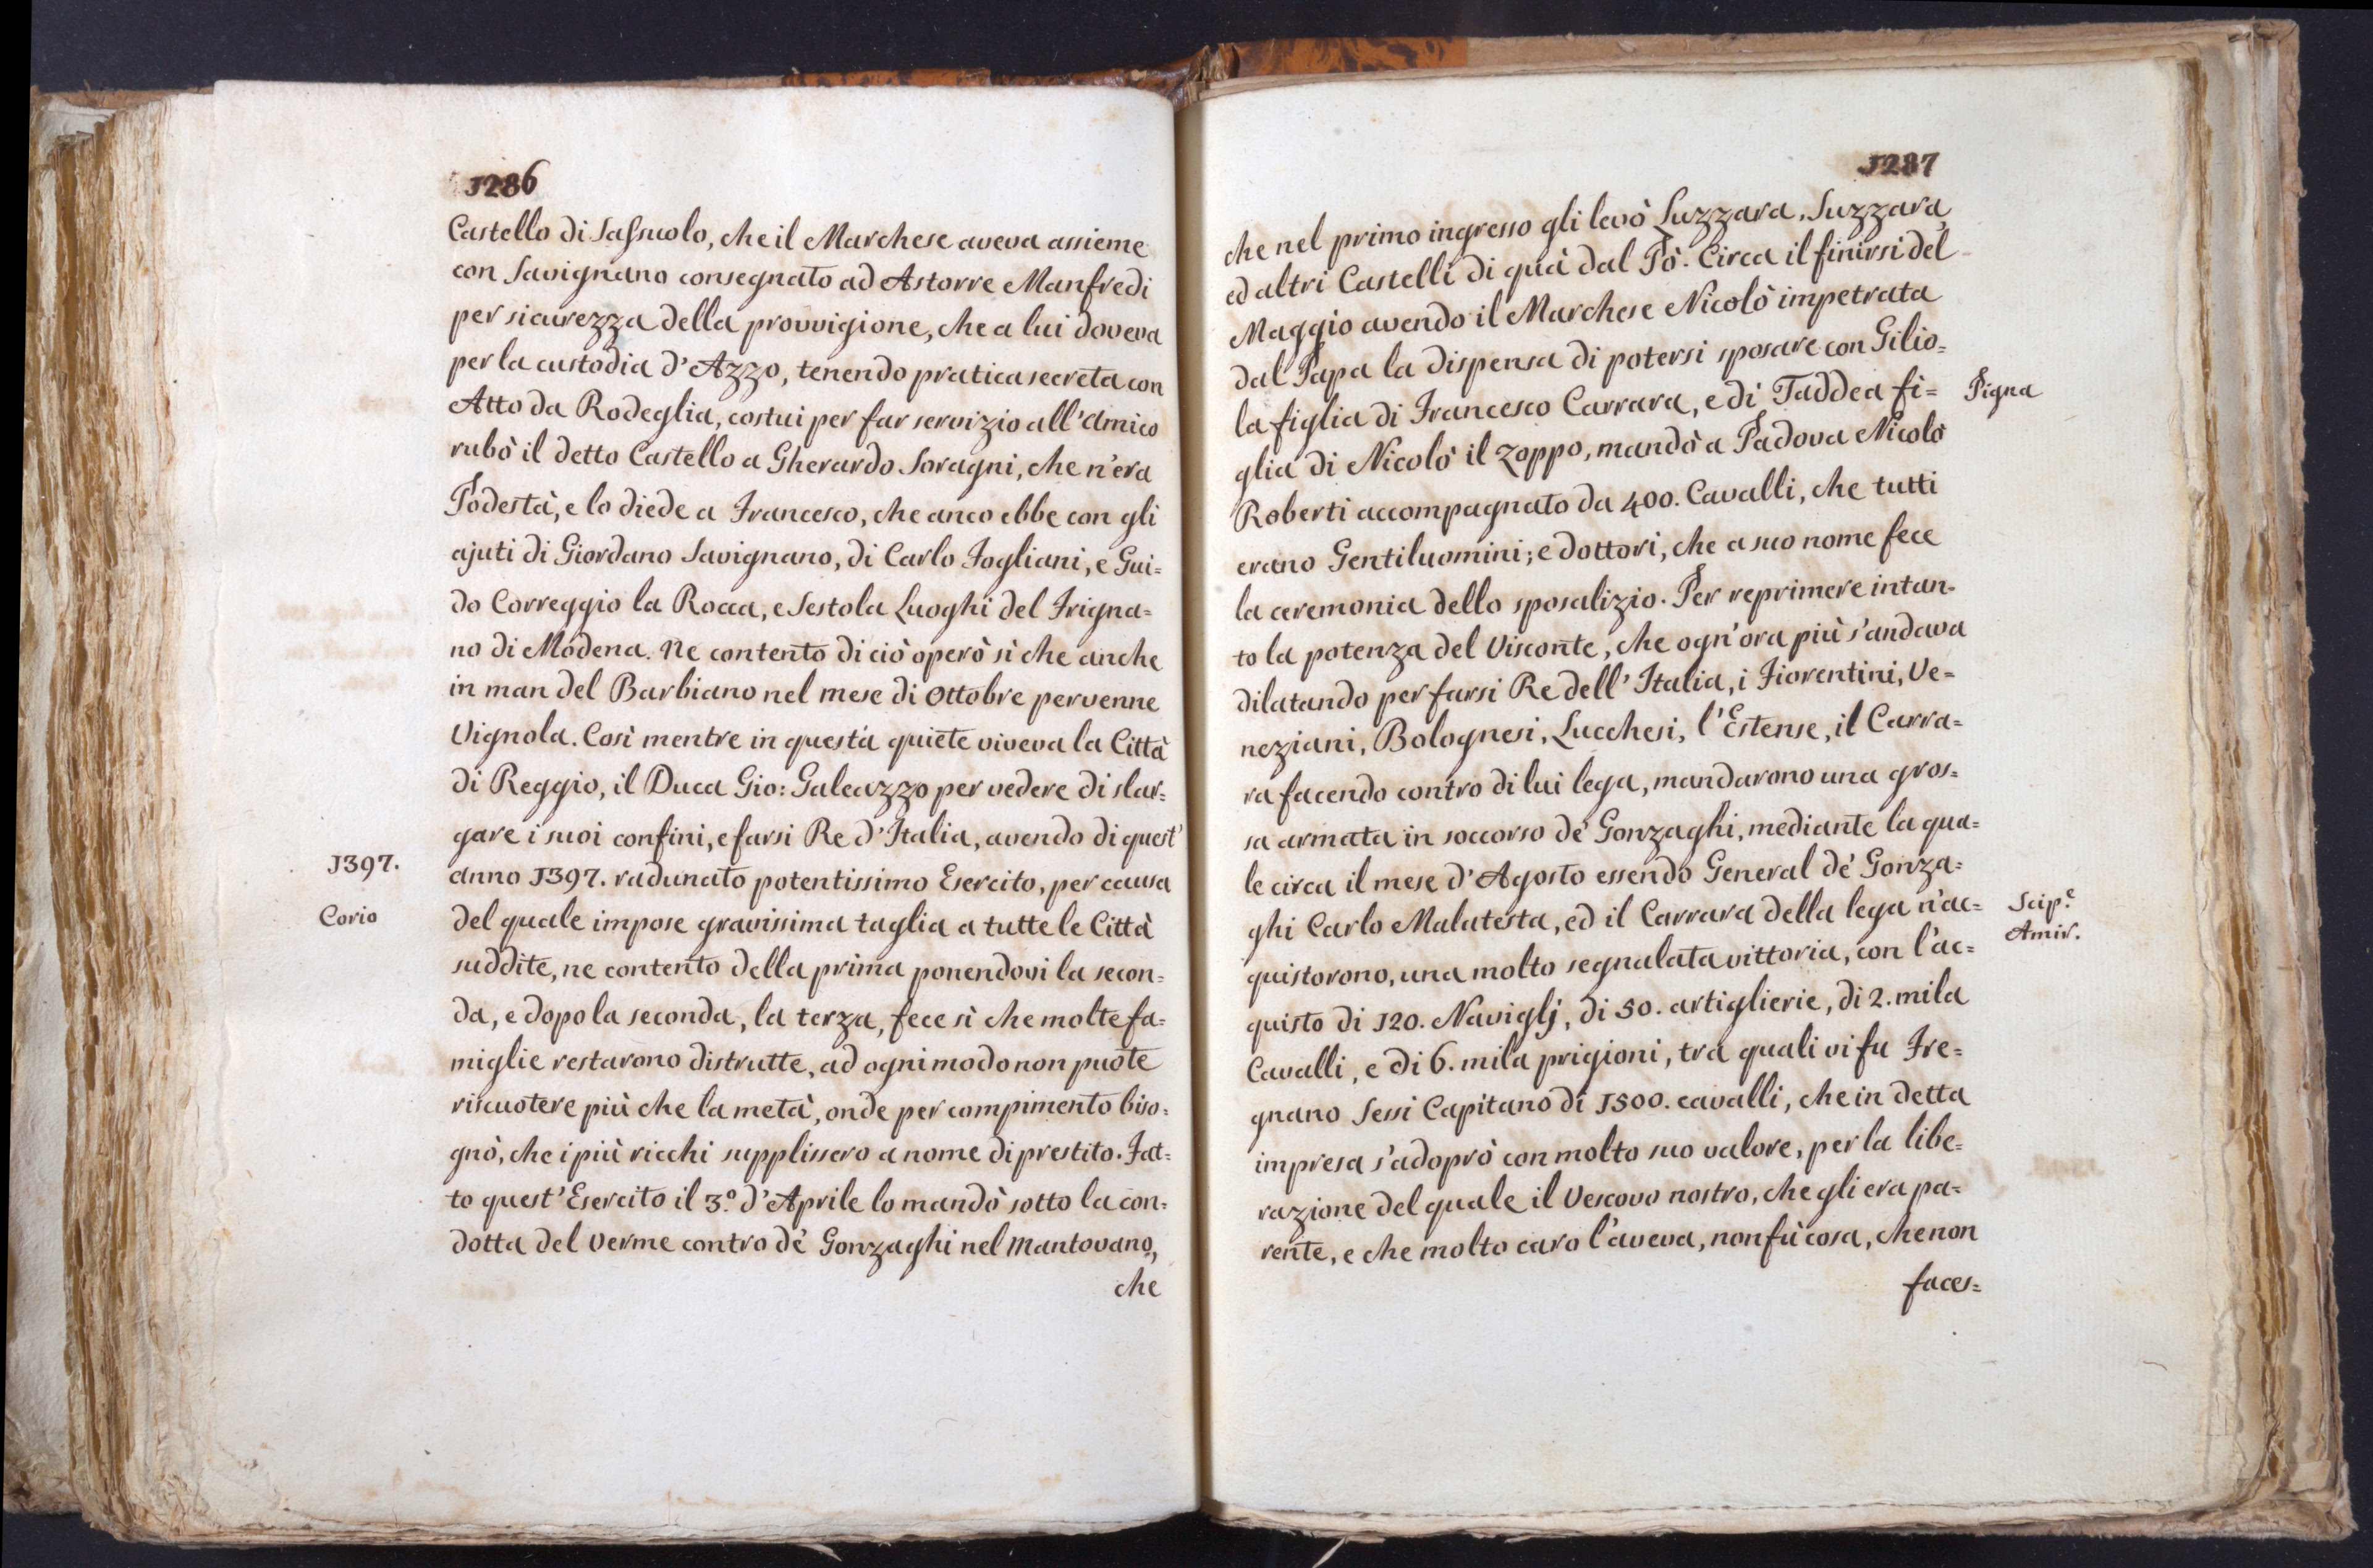 1286
Castello di Sassuolo, che il Marchese aveva assieme
con Savignano consegnato ad Astorre Manfredi
per sicurezza della provvigione, che a lui doveva
per la custodia d'Azzo, tenendo pratica secreta con
Atto da Rodeglia, costui per far servizio all'Amico
rubò il detto Castello a Gherardo Soragni, che n'era
Podestà, e lo diede a Francesco, che anco ebbe con gli
ajuti di Giordano Savignano, di Carlo Fogliani, e Gui=
do Correggio la Rocca, e Sestola Luoghi del Frigna=
no di Modena. Ne contento di ciò operò sì che anche
in man del Barbiano nel mese di Ottobre pervenne
Vignola. Così mentre in questa quiete viveva la Città
di Reggio, il Duca Gio: Galeazzo per vedere di slar=
gare i suoi confini, e farsi Re d'Italia, avendo di quest'
1397.
anno 1397. radunato potentissimo Esercito, per causa
Corio
del quale impose gravissima taglia a tutte le Città
suddite, ne contento della prima ponendovi la secon=
da, e dopo la seconda, la terza, fece sì che molte fa=
miglie restarono distrutte, ad ogni modo non puote
riscuotere più che la metà, onde per compimento biso=
gnò, che i più ricchi supplissero a nome di prestito. Fat=
to quest'Esercito il 3.º d'Aprile lo mandò sotto la con=
dotta del Verme contro de' Gonzaghi nel Mantovano,
che
1287
che nel primo ingresso gli levò Luzzara, Suzzara,
ed altri Castelli di quà dal Pò. Circa il finirsi del
Maggio avendo il Marchese Nicolò impetrata
dal Papa la dispensa di potersi sposare con Gilio=
la figlia di Francesco Carrara, e di Taddea fi=
Pigna
glia di Nicolò il Zoppo, mandò a Padova Nicolò
Roberti accompagnato da 400. Cavalli, che tutti
erano Gentiluomini; e dottori, che a suo nome fece
la ceremonia dello sposalizio. Per reprimere intan-
to la potenza del Visconte, che ogn'ora più s'andava
dilatando per farsi Re dell'Italia, i Fiorentini, Ve=
neziani, Bolognesi, Lucchesi, l'Estense, il Carra=
ra facendo contro di lui lega, mandarono una gros=
sa armata in soccorso de' Gonzaghi, mediante la qua=
le circa il mese d'Agosto essendo General de' Gonza=
ghi Carlo Malatesta, ed il Carrara della lega n'ac=
Scip.e
Amir.
quistorono, una molto segnalata vittoria, con l'ac=
quisto di 120. Naviglj, di 50. artiglierie, di 2. mila
Cavalli, e di 6. mila prigioni, tra quali vi fu Fre=
gnano Sessi Capitano di 1500. cavalli, che in detta
impresa s'adoprò con molto suo valore, per la libe=
razione del quale il Vescovo nostro, che gli era pa=
rente, e che molto caro l'aveva, non fù cosa, che non
faces=